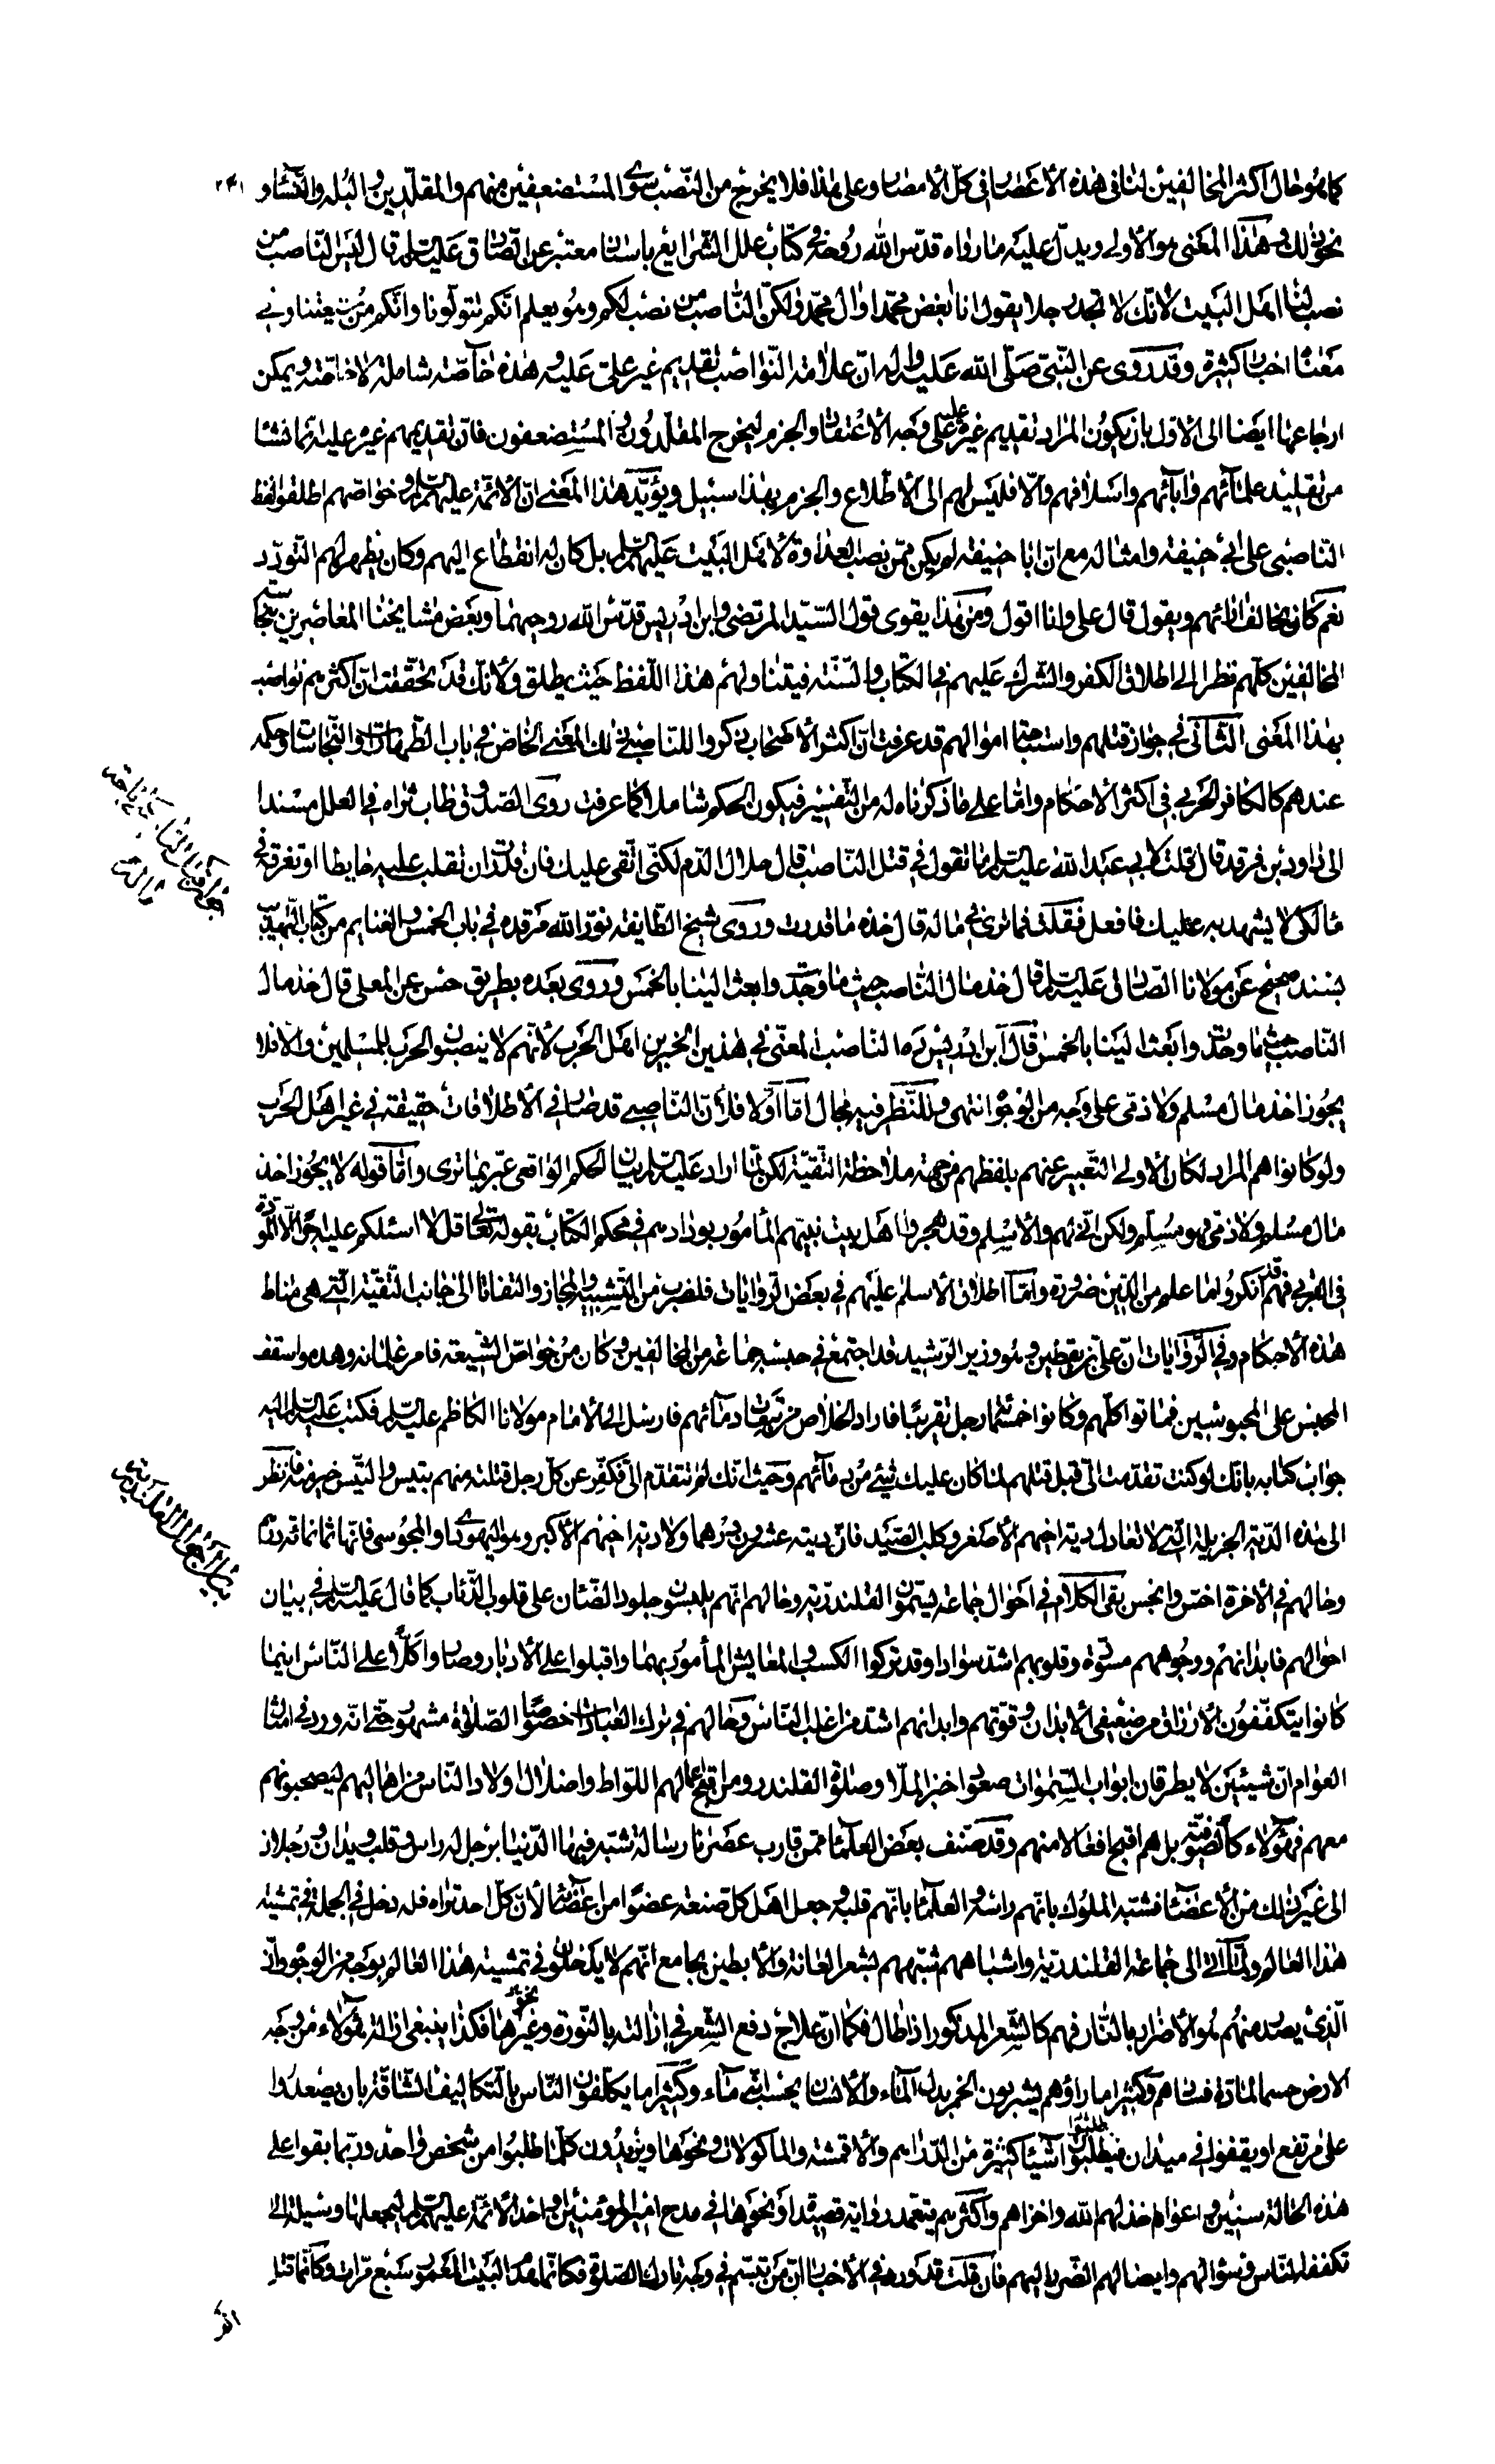 كما هو حال اكثر المخالفين لنا في هذه الأعصار في كل الأمصار وعلى هذا فلا يخرج من النصب سوى المستضعفين منهم والمقلدين والبله والنساء و
نحو ذلك وهذا المعنى هو الأولى ويدل عليه ما رواه قدس الله روحه في كتاب علل الشرايع باسناد معتبر عن الصادق عليه السلم قال ليس الناصب من
نصب لنا اهل البيت لأنك لا تجد رجلا يقول انا ابغض محمدا وال محمد ولكن الناصب من نصب لكم وهو يعلم انكم تتولونا وانكم من شيعتنا وفي
معناه اخبار كثيرة وقد روى عن النبي صلى الله عليه واله ان علامة النواصب تقديم غير علي عليه وهذه خاصة شاملة لا خاصة ويمكن
ارجاعها ايضا الى الأول بان يكون المراد تقديم غيره عليه على وجه الأعتقاد والجزم ليخرج المقلدون والمستضعفون فان تقديمهم غيره عليه انما نشأ
من تقليد علمائهم وابائهم واسلافهم والا فليس لهم الى الأطلاع والجزم بهذا سبيل ويؤيد هذا المعنى ان الأئمة عليهم السلم وخواصهم اطلقوا لفظ
الناصبي على ابي حنيفة وامثاله مع ان ابا حنيفة لم يكن ممن نصب العداوة لأهل البيت عليهم السلم بل كان له انقطاع اليهم وكان يظهر لهم التودد
نعم كان يخالف ارائهم ويقول قال علي وانا اقول ومن هذا يقوى قول السيد المرتضى وابن ادريس قدس الله روحيهما وبعض مشايخنا المعاصرين بنجاسة
المخالفين كلهم نظرا الى اطلاق الكفر والشرك عليهم في الكتاب والسنة فيتناولهم هذا اللفظ حيث يطلق ولأنك قد تحققت ان اكثرهم نواصب
بهذا المعنى الثاني في جواز قتلهم واستباحة اموالهم قد عرفت ان اكثر الأصحاب ذكروا للناصبي ذلك المعنى الخاص في باب الطهارات والنجاسات وحكمه
عندهم كالكافر الحربي في اكثر الأحكام واما على ما ذكرناه له من التفسير فيكون الحكم شاملا كما عرفت روى الصدوق طاب ثراه في العلل مسندا
الى داود بن فرقد قال قلت لأبي عبد الله عليه السلم ما تقول في قتل الناصب قال حلال الدم لكني اتقي عليك فان قدرت ان تقلب عليه حايطا او تغرقه في
ماء لكي لا يشهد به عليك فافعل فقلت فما ترى في ماله قال خذه ما قدرت وروى شيخ الطايفة نور الله مرقده في باب الخمس والغنايم من كتاب التهذيب
بسند صحيح عن مولانا الصادق عليه السلم قال خذ مال الناصب حيث ما وجدت وابعث الينا بالخمس وروى بعده بطريق حسن عن المعلى قال خذ مال
الناصب حيث ما وجدت وابعث الينا بالخمس قال ابن ادريس ره الناصب المعنى في هذين الخبرين اهل الحرب لأنهم لا ينصبون الحرب للمسلمين والا فلا
يجوز اخذ مال مسلم ولا ذمي على وجه من الوجوه انتهى وللنظر فيه مجال اما اولا فلأن الناصبي قد صار في الأطلاقات حقيقة في غير اهل الحرب
ولو كانوا هم المراد لكان الأولى التعبير عنهم بلفظهم من جهة ملاحظة التقية لكن لما اراد عليه السلم بيان الحكم الواقعي عبر بما ترى واما قوله لا يجوز اخذ
مال مسلم ولا ذمي فهو مسلم ولكن انى لهم والأسلم وقد هجروا اهل بيت نبيهم المأمور بودادهم في محكم الكتاب بقوله تعالى قل لا اسئلكم عليه اجرا الا المودة
في القربى فهم قد انكروا ما علم من الدين ضرورة واما اطلاق الأسلم عليهم في بعض الروايات فلضرب من التشبيه والمجاز والتفاتا الى جانب التقية التي هي مناط
هذه الأحكام وفي الروايات ان علي بن يقطين وهو وزير الرشيد قد اجتمع في حبسه جماعة من المخالفين وكان من خواص الشيعة فامر غلمانه وهدموا سقف
المحبس على المحبوسين فماتوا كلهم وكانوا خمسمائة رجل تقريبا فاراد الخلاص من تبعات دمائهم فارسل الى الأمام مولانا الكاظم عليه السلم فكتب عليه السلم اليه
جواب كتابه بانك لو كنت تقدمت الي قبل قتلهم لما كان عليك شيء من دمائهم وحيث انك لم تتقدم الي فكفر عن كل رجل قتلته منهم بتيس والتيس خير منه فانظر
الى هذه الدية الجزيلة التي لا تعادل دية اخيهم الأصغر وكلب الصيد فان ديته عشرون درهما ولا دية اخيهم الأكبر وهو اليهودي او المجوسي فانها ثمانمائة درهم
وحالهم في الأخرة اخس وانجس بقي الكلام في احوال جماعة يسمون القلندرية وحالهم انهم يلبسون جلود الضئان على قلوب الذئاب كما قال عليه السلم في بيان
احوالهم فابدانهم ووجوههم مسودة وقلوبهم اشد سوادا وقد تركوا الكسب والمعايش المأمور بهما واقبلوا على الأدبار وصاروا كلا على الناس اينما
كانوا يتكففون الأرزاق من ضعيفي الأبدان وقوتهم وابدانهم اشد من اغلب الناس وحالهم في ترك العبادات خصوصا الصلوة مشهور حتى انه ورد في امثال
العوام ان شيئين لا يطرقان ابواب السموات صعودا خبز الملا وصلوة القلندر ومن اقبح اعمالهم اللواط واضلال اولاد الناس من اهاليهم ليصحبونهم
معهم فهؤلاء كالصوفية بل هم اقبح افعالا منهم وقد صنف بعض العلماء ممن قارب عصرنا رسالة شبه فيها الدنيا برجل له راس وقلب ويدان ورجلان
الى غير ذلك من الأعضاء فشبه الملوك بانهم راسه والعلماء بانهم قلبه وجعل اهل كل صنعة عضوا من اعضائه لأن كل احد تراه فله دخل في الجملة في تمشية
هذا العالم ولما ال الى جماعة القلندرية واشباههم شبههم بشعر العانة والأبطين بجامع انهم لا يدخلون في تمشية هذا العالم بوجه من الوجوه وان
الذي يصدر منهم هو الأضرار بالناس فهم كالشعر المذكور اذا طال فكما ان علاج دفع الشعر في ازالته بالنورة ونحوها وغيرها فكذا ينبغي ازالة هؤلاء من وجه
الأرض حسما لمادة فسادهم وكثيرا ما راؤهم يشربون الخمر بدل الماء والأنسان يحسب انه ماء وكثيرا ما يكلفون الناس بالتكاليف الشاقة بان يصعدوا
على مرتفع او يقفوا في ميدان فيطلبوا اشياء كثيرة من الدراهم والأقمشة والماكولات ونحوها ويزيدون كلما طلبوا من شخص واحد وربما بقوا على
هذه الحالة سنين واعوام خذلهم الله واخزاهم واكثرهم يتعمد رواية قصيدة او نحوها في مدح امير المؤمنين واحد الأئمة عليهم السلم ليجعلها وسيلة الى
تكفف الناس وسؤالهم وايصالهم الضرر اليهم فان قلت قد ورد في الأخبار ان من تبسم في وجه تارك الصلوة فكانما هدم البيت المعمور سبع مرات وكانما قتل